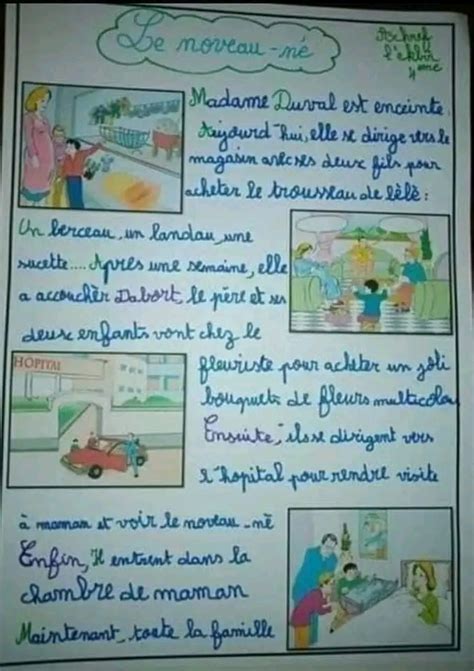 Le noveau-né
Aschref
4ème
Madame Duval est enceinte.
Aujourd'hui, elle se dirige vers le
magasin avec ses deux fils pour
acheter le trousseau de bébé :
Un berceau, un landau, une
sucette.... Après une semaine, elle
a accouchér Dabort, le père et ses
deux enfants vont chez le
HOPITAL
fleuriste pour acheter un joli
bouquets de fleurs multicolou
Ensuite, ils se dirigent vers
l'hopital pour rendre visite
à maman et voir le noveau-né
Enfin, Il entrent dans la
chambre de maman
Maintenant, toute la famille